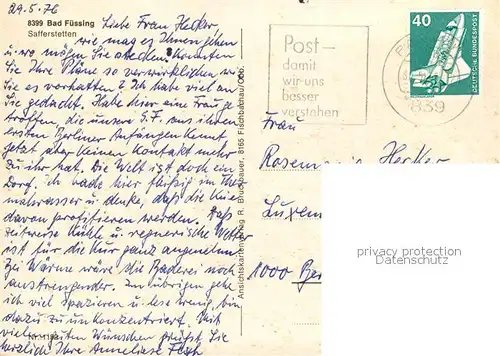 29.5.76
8399 Bad Füssing
Safferstetten
Liebe Frau Hecker
wie mag es Ihnen gehen
u. wo mögen Sie stecken? Konnten
Sie Ihre Pläne so verwirklichen wie
Sie es vorhatten? Ich habe viel an
Sie gedacht. Habe hier eine Frau ge-
troffen, die unsere S.F. aus ihren
ersten Berliner Anfängen kennt
jetzt aber keinen Kontakt mehr
zu ihr hat. Die Welt ist doch ein
Dorf. Ich bade hier fleißig im Ther-
malwasser u. denke, daß die Knie
davon profitieren werden. Daß
zeitweise kühle u. regnerische Wetter
ist für die Kur ganz angenehm.
Bei Wärme wäre die Baderei noch
anstrengender. Im übrigen gehe
ich viel spazieren u. lese wenig, bin
dazu zu unkonzentriert. Mit
vielen guten Wünschen grüßt Sie
herzlich Ihre Anneliese
Ansichtskartenverlag R. Bruckbauer, 8165 Fischbachau/Obb.
Post-
damit
wir uns
besser
verstehen
839
40
DEUTSCHE BUNDESPOST
Frau
Rosemarie Hecker
Luxem
1000 Ber
privacy protection
Datenschutz